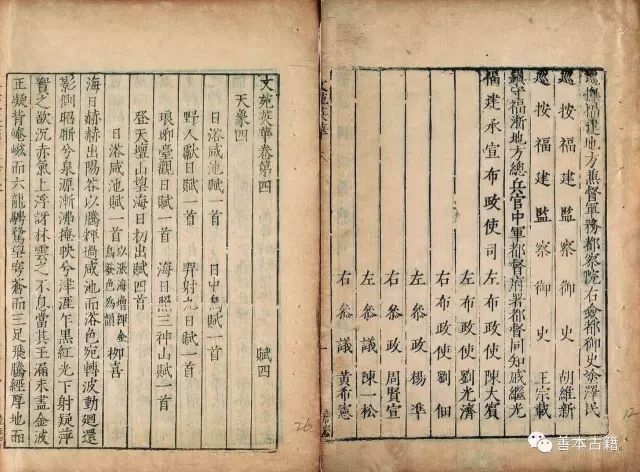 巡撫福建地方兼督軍務都察院右僉都御史塗澤民
巡按福建監察御史胡維新
巡按福建監察御史王宗載
鎮守福浙地方總兵官中軍都督府署都督同知戚繼光
福建承宣布政使司左布政使陳大賓
右布政使劉佃
左布政使劉光濟
左叅政楊準
右叅政周賢宣
左叅議陳一松
右叅議黃希憲
文苑英華卷第四
天象四 賦四
日浴咸池賦一首 日中烏賦一首
野人獻日賦一首 羿射九日賦一首
琅琊臺觀日賦一首 海日照三神山賦一首
登天壇山望海日初出賦四首
日浴咸池賦一首以漲海增輝金烏養色為韻 柳喜
海日赫赫出陽谷以騰輝過咸池而浴色宛轉波動迴還
影側昭晰兮泉源漸沸掩映兮津涯乍黑紅光下射疑萍
實之欲沉赤氣上浮訝林雲之不息當其玉漏未盡金波
正凝背崦嵫而六龍騁騖望穹蒼而三足飛騰經厚地而
26
12
善本古籍